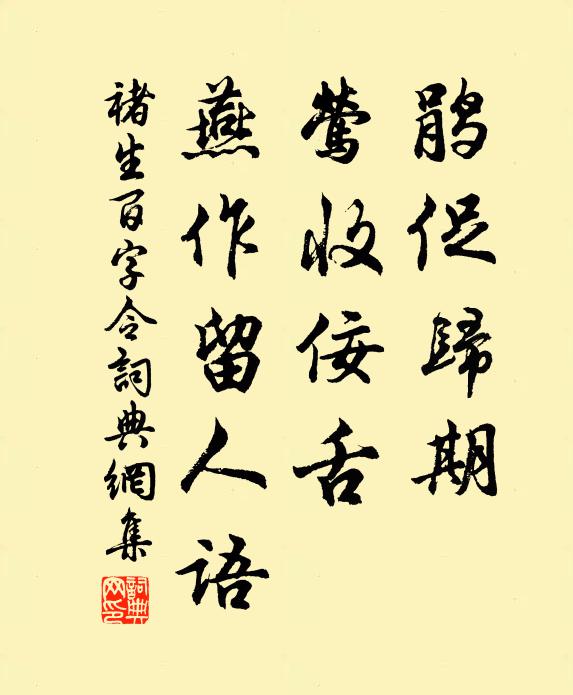 鹃促歸期
鶯收佞舌
燕作留人語
褚生百字令詞典網集
詞典网印